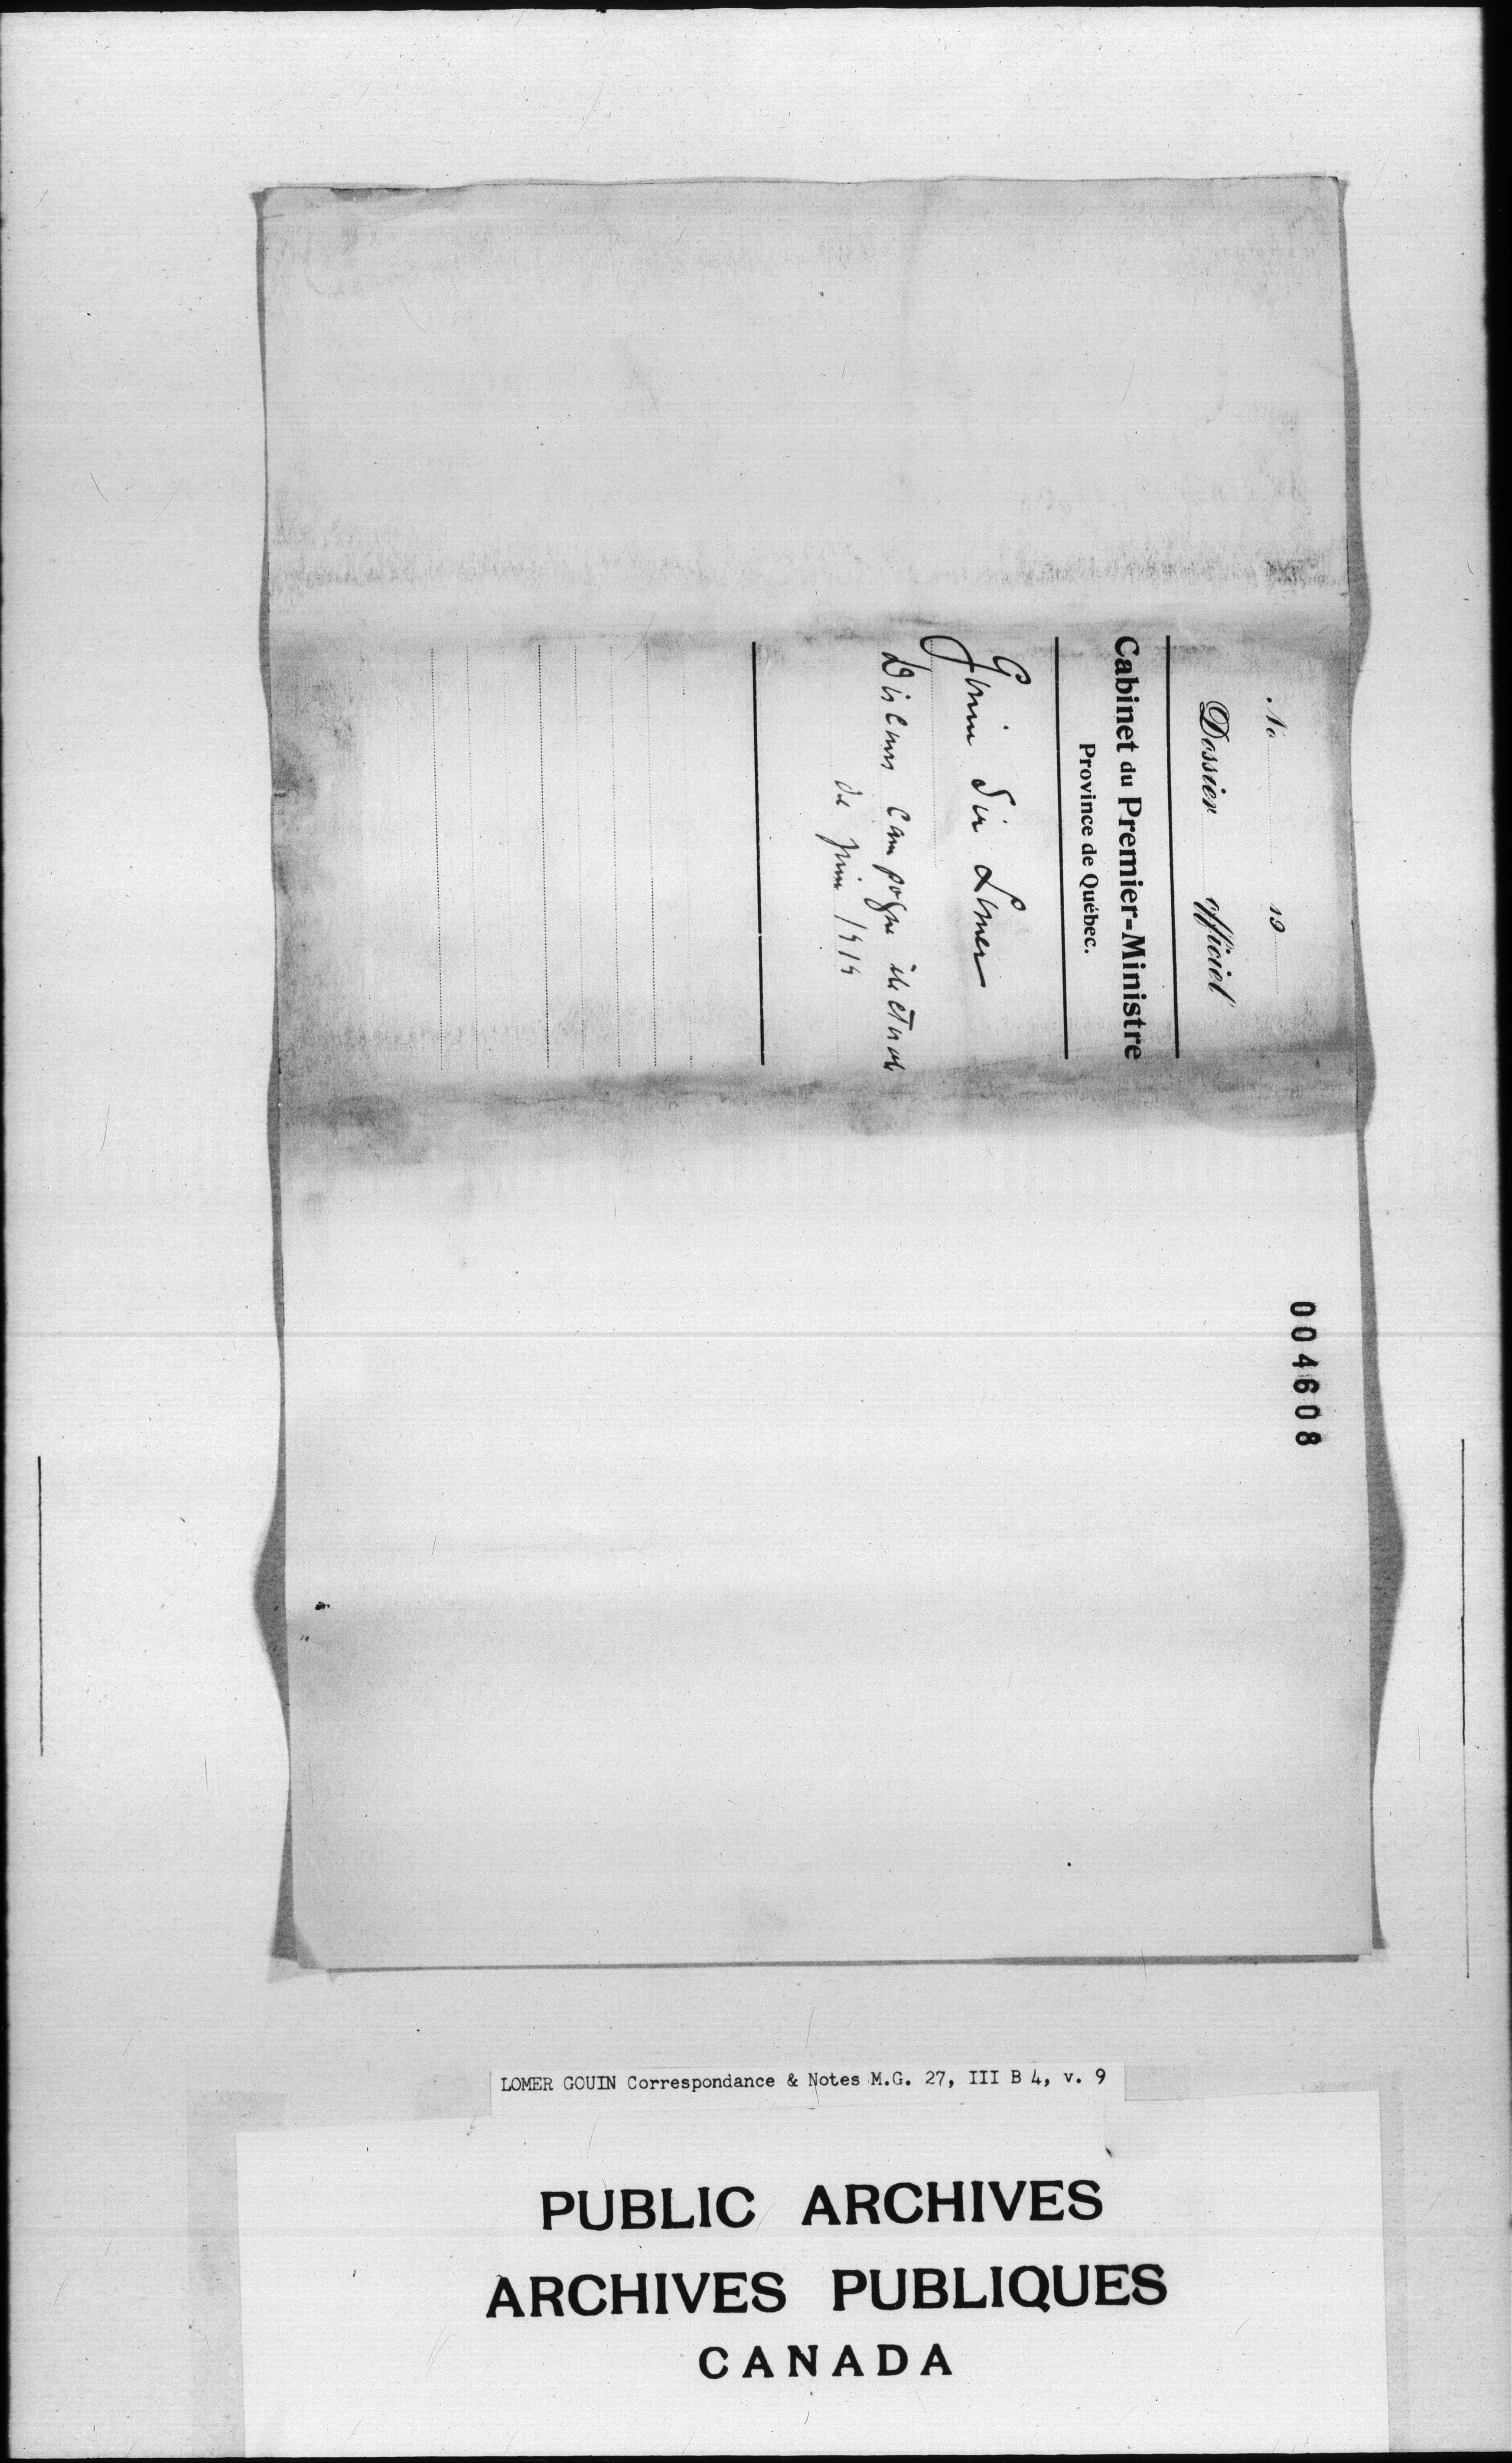 No 19
Dossier officiel
Cabinet du Premier=Ministre
Province de Québec.
Gouin Sir Lomer
Discours campagne électorale
de juin 1919
004608
LOMER GOUIN Correspondance & Notes M.G. 27, III B 4, v. 9
PUBLIC ARCHIVES
ARCHIVES PUBLIQUES
CANADA